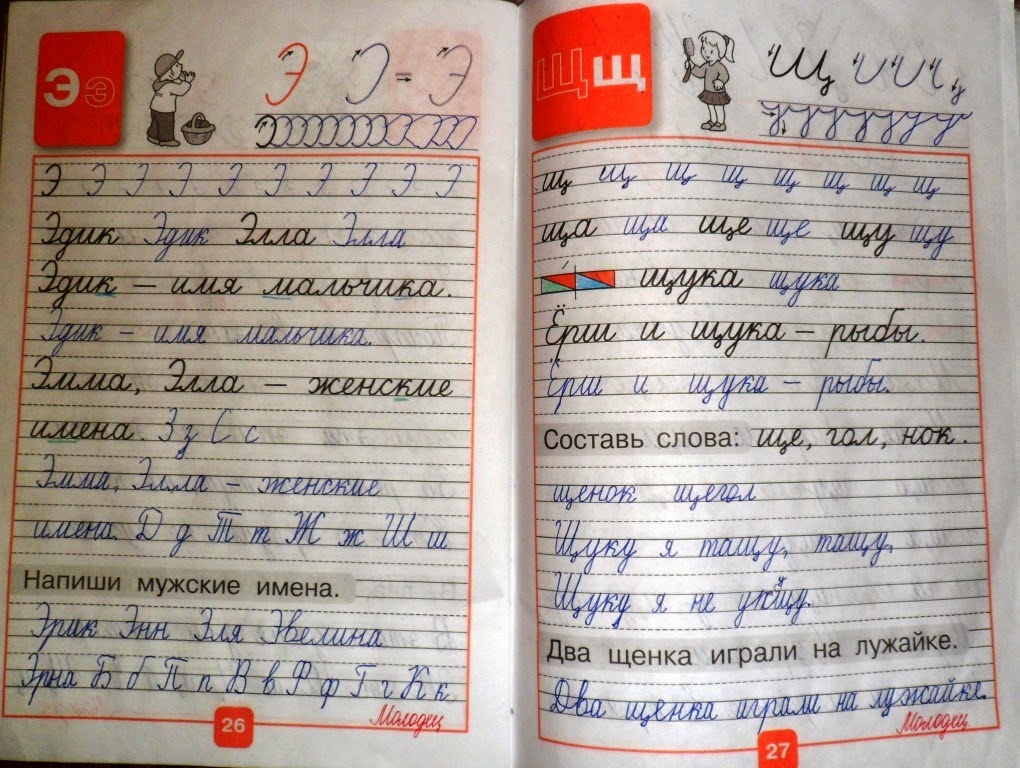 Э э
Э Э = Э
Э Э Э Э Э Э Э Э Э Э
Эдик Эдик Элла Элла
Эдик – имя мальчика.
Эдик – имя мальчика.
Эмма, Элла – женские
имена. З з С с
Эмма, Элла – женские
имена. Д д Т т Ж ж Ш ш
Напиши мужские имена.
Эрик Энн Эля Эвелина
Эрна Б б П п В в Ф ф Г г К к
Молодец
26
Щ щ
Щ
щ щ щ щ щ щ щ щ
ща ща ще ще щу щу
щука щука
Ёрш и щука – рыбы.
Ёрш и щука – рыбы.
Составь слова: ще, гол, нок.
щенок щегол
Щуку я тащу, тащу,
Щуку я не упущу.
Два щенка играли на лужайке.
Два щенка играли на лужайке.
Молодец
27